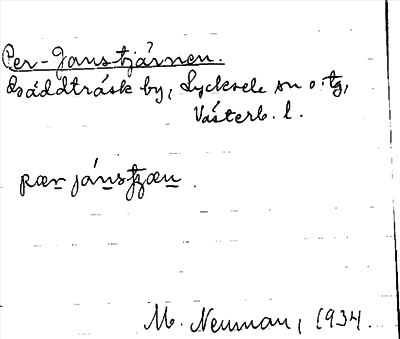 Per-Janstjärnen.
Bäddträsk by, Lycksele sn o. tg,
Västerb. l.
pær jánstjæn.
M. Neuman, 1934.